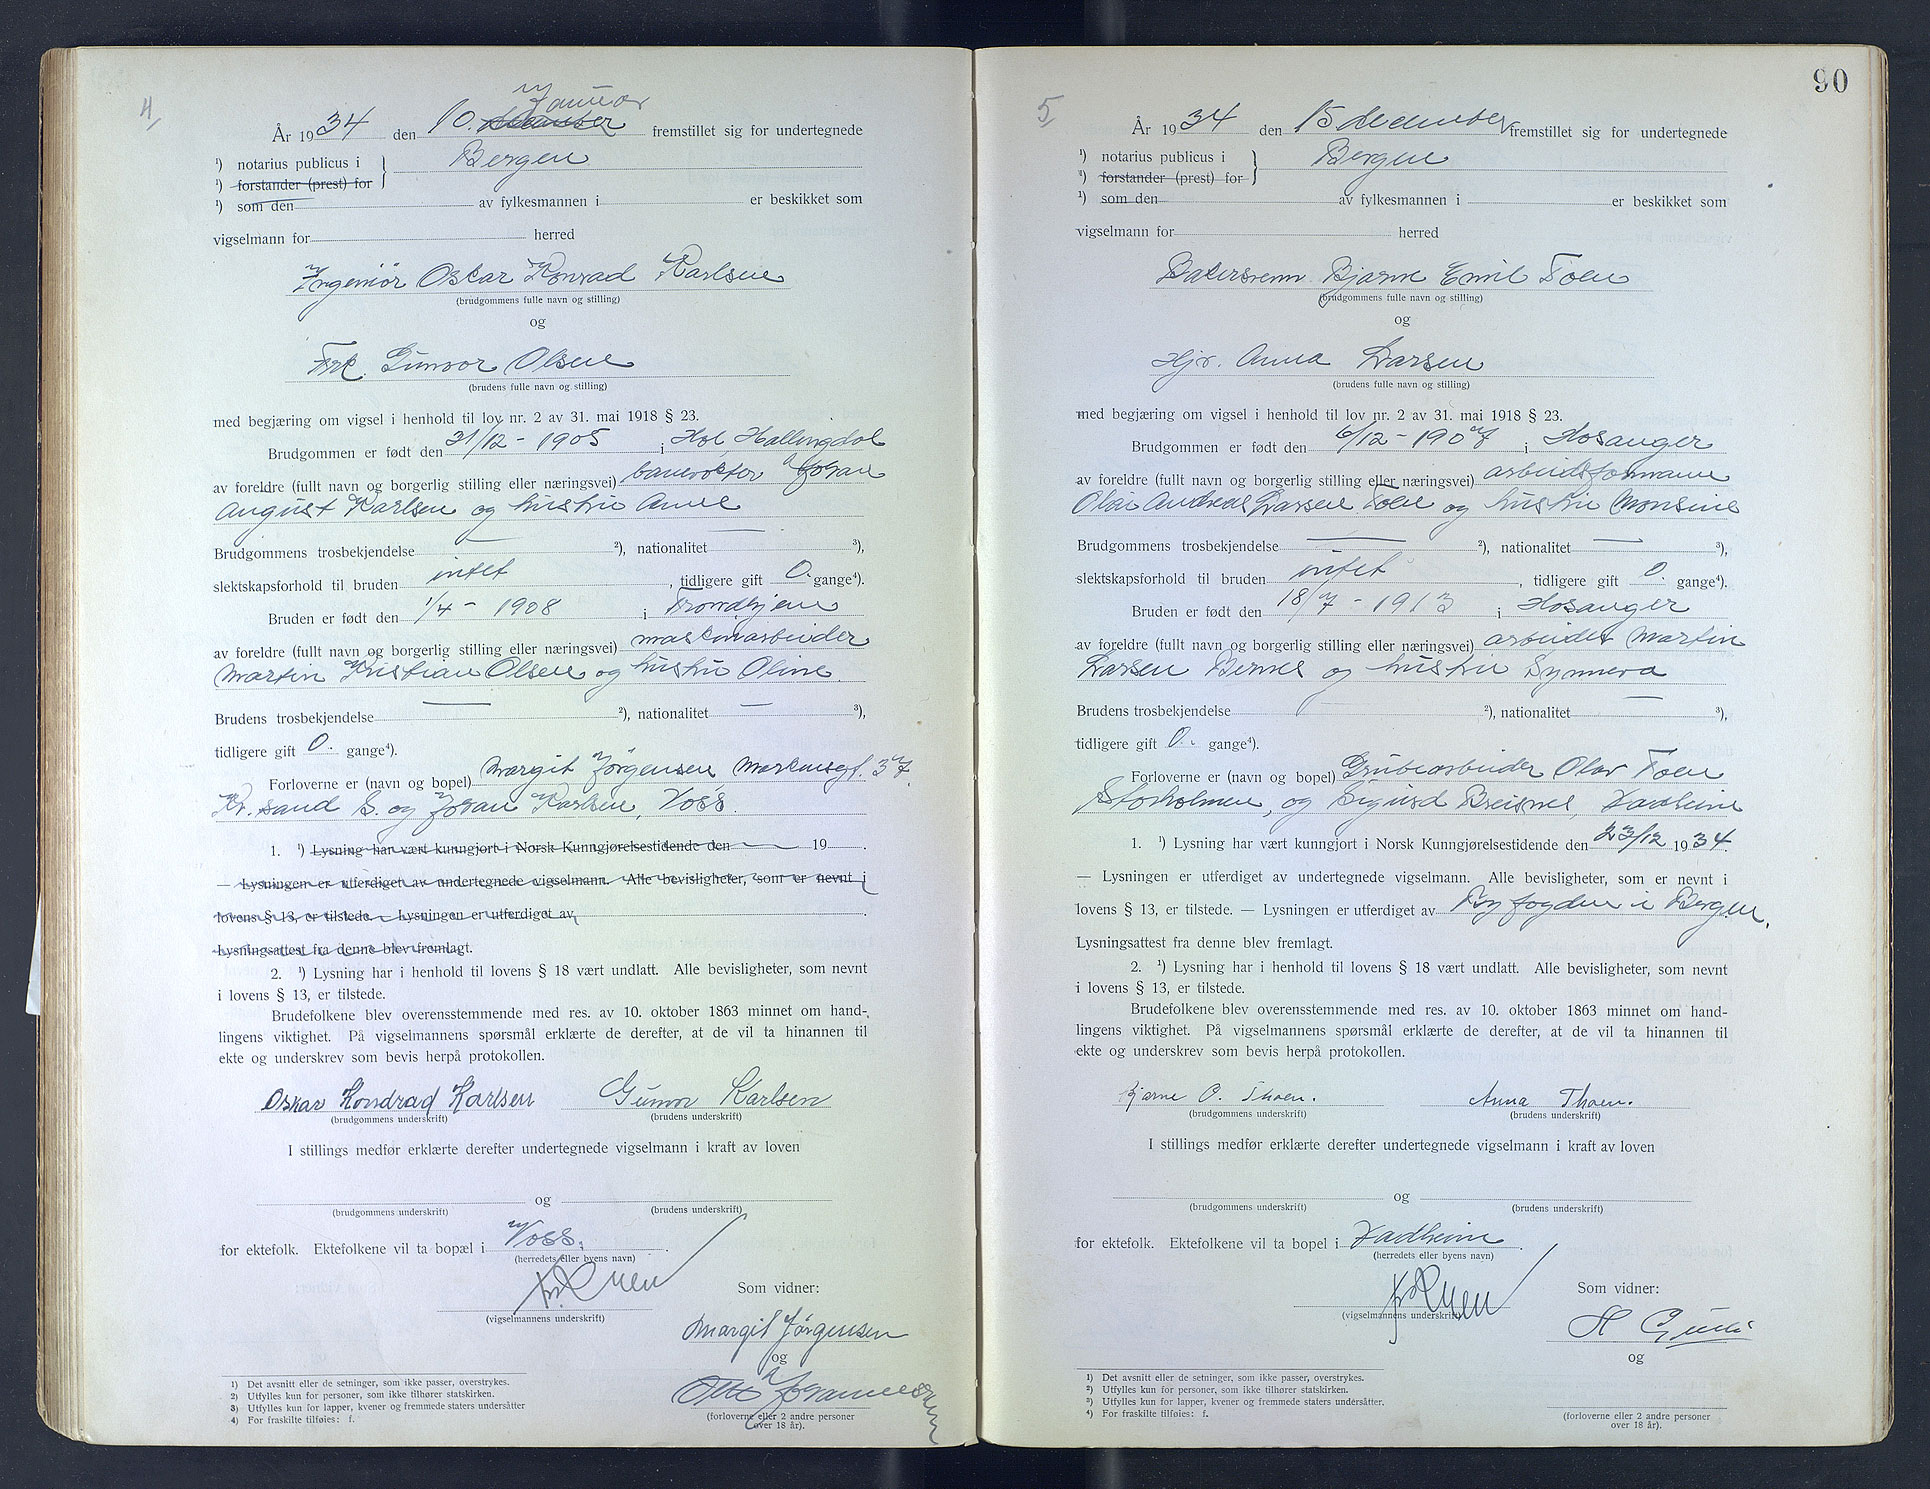 4.
Januar
År 1934 den 10. december fremstillet sig for undertegnede
¹) notarius publicus i Bergen
¹) forstander (prest) for
¹) som den av fylkesmannen i er beskikket som
vigselmann for herred
Ingeniör Oskar Konrad Karlsen
(brudgommens fulle navn og stilling)
og
Frk. Gunvor Olsen
(brudens fulle navn og stilling)
med begjæring om vigsel i henhold til lov nr. 2 av 31. mai 1918 § 23.
Brudgommen er født den 31/12 - 1905 i Hol, Hallingdal
av foreldre (fullt navn og borgerlig stilling eller næringsvei) banevokter Johan
August Karlsen og hustru Anne
Brudgommens trosbekjendelse — ²), nationalitet — ³),
slektskapsforhold til bruden intet, tidligere gift 0. gange⁴).
Bruden er født den 1/4 - 1908 i Trondhjem
av foreldre (fullt navn og borgerlig stilling eller næringsvei) maskinarbeider
Martin Kristian Olsen og hustru Oline.
Brudens trosbekjendelse — ²), nationalitet — ³),
tidligere gift 0. gange⁴).
Forloverne er (navn og bopel) Margit Jørgensen Markensgt. 37,
Kr.sand S. og Johan Karlsen, Voss.
1. ¹) Lysning har vært kunngjort i Norsk Kunngjørelsestidende den — 19 .
— Lysningen er utferdiget av undertegnede vigselmann. Alle bevisligheter, som er nevnt i
lovens § 13, er tilstede. — Lysningen er utferdiget av .
Lysningsattest fra denne blev fremlagt.
2. ¹) Lysning har i henhold til lovens § 18 vært undlatt. Alle bevisligheter, som nevnt
i lovens § 13, er tilstede.
Brudefolkene blev overensstemmende med res. av 10. oktober 1863 minnet om hand-
lingens viktighet. På vigselmannens spørsmål erklærte de derefter, at de vil ta hinannen til
ekte og underskrev som bevis herpå protokollen.
Oskar Kondrad Karlsen Gunvor Karlsen
(brudgommens underskrift) (brudens underskrift)
I stillings medfør erklærte derefter undertegnede vigselmann i kraft av loven
og
(brudgommens underskrift) (brudens underskrift)
for ektefolk. Ektefolkene vil ta bopæl i Voss.
(herredets eller byens navn)
Som vidner:
(vigselmannens underskrift)
Margit Jørgensen
og
Otto Johannessen
(forloverne eller 2 andre personer
over 18 år).
1) Det avsnitt eller de setninger, som ikke passer, overstrykes.
2) Utfylles kun for personer, som ikke tilhører statskirken.
3) Utfylles kun for lapper, kvener og fremmede staters undersåtter
4) For fraskilte tilføies: f.
90
5.
År 1934 den 15 december fremstillet sig for undertegnede
¹) notarius publicus i Bergen
¹) forstander (prest) for
¹) som den av fylkesmannen i er beskikket som
vigselmann for herred
Bakersvenn Bjarne Emil Toen
(brudgommens fulle navn og stilling)
og
Hjv. Anna Larsen
(brudens fulle navn og stilling)
med begjæring om vigsel i henhold til lov nr. 2 av 31. mai 1918 § 23.
Brudgommen er født den 6/12 - 1907 i Hosanger
av foreldre (fullt navn og borgerlig stilling eller næringsvei) arbeidsformann
Olai Andreas Larsen Toen og hustru Monsine
Brudgommens trosbekjendelse — ²), nationalitet — ³),
slektskapsforhold til bruden intet, tidligere gift 0. gange⁴).
Bruden er født den 18/7 - 1913 i Hosanger
av foreldre (fullt navn og borgerlig stilling eller næringsvei) arbeider Martin
Larsen Bernes og hustru Synneva
Brudens trosbekjendelse ²), nationalitet — ³),
tidligere gift 0. gange⁴).
Forloverne er (navn og bopel) Grubearbeider Olav Toen
Storholmen, og Sigurd Breisnes, Vadheim
1. ¹) Lysning har vært kunngjort i Norsk Kunngjørelsestidende den 23/12 1934.
— Lysningen er utferdiget av undertegnede vigselmann. Alle bevisligheter, som er nevnt i
lovens § 13, er tilstede. — Lysningen er utferdiget av Byfogden i Bergen.
Lysningsattest fra denne blev fremlagt.
2. ¹) Lysning har i henhold til lovens § 18 vært undlatt. Alle bevisligheter, som nevnt
i lovens § 13, er tilstede.
Brudefolkene blev overensstemmende med res. av 10. oktober 1863 minnet om hand-
lingens viktighet. På vigselmannens spørsmål erklærte de derefter, at de vil ta hinannen til
ekte og underskrev som bevis herpå protokollen.
Bjarne O. Thoen. Anna Thoen.
(brudgommens underskrift) (brudens underskrift)
I stillings medfør erklærte derefter undertegnede vigselmann i kraft av loven
og
(brudgommens underskrift) (brudens underskrift)
for ektefolk. Ektefolkene vil ta bopel i Vadheim.
(herredets eller byens navn)
Som vidner:
(vigselmannens underskrift)
og
(forloverne eller 2 andre personer
over 18 år).
1) Det avsnitt eller de setninger, som ikke passer, overstrykes.
2) Utfylles kun for personer, som ikke tilhører statskirken.
3) Utfylles kun for lapper, kvener og fremmede staters undersåtter.
4) For fraskilte tilføies: f.